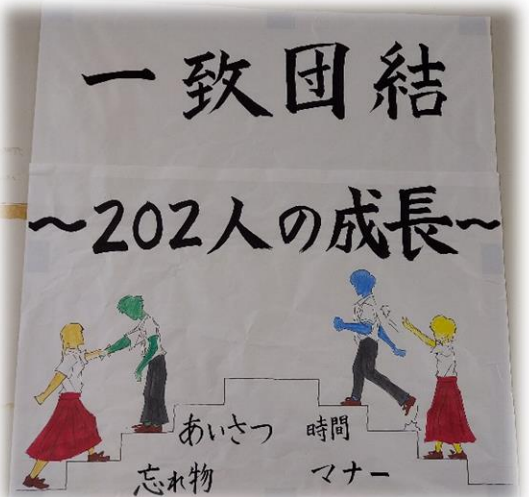 一致団結
～202人の成長～
あいさつ 時間
忘れ物 マナー